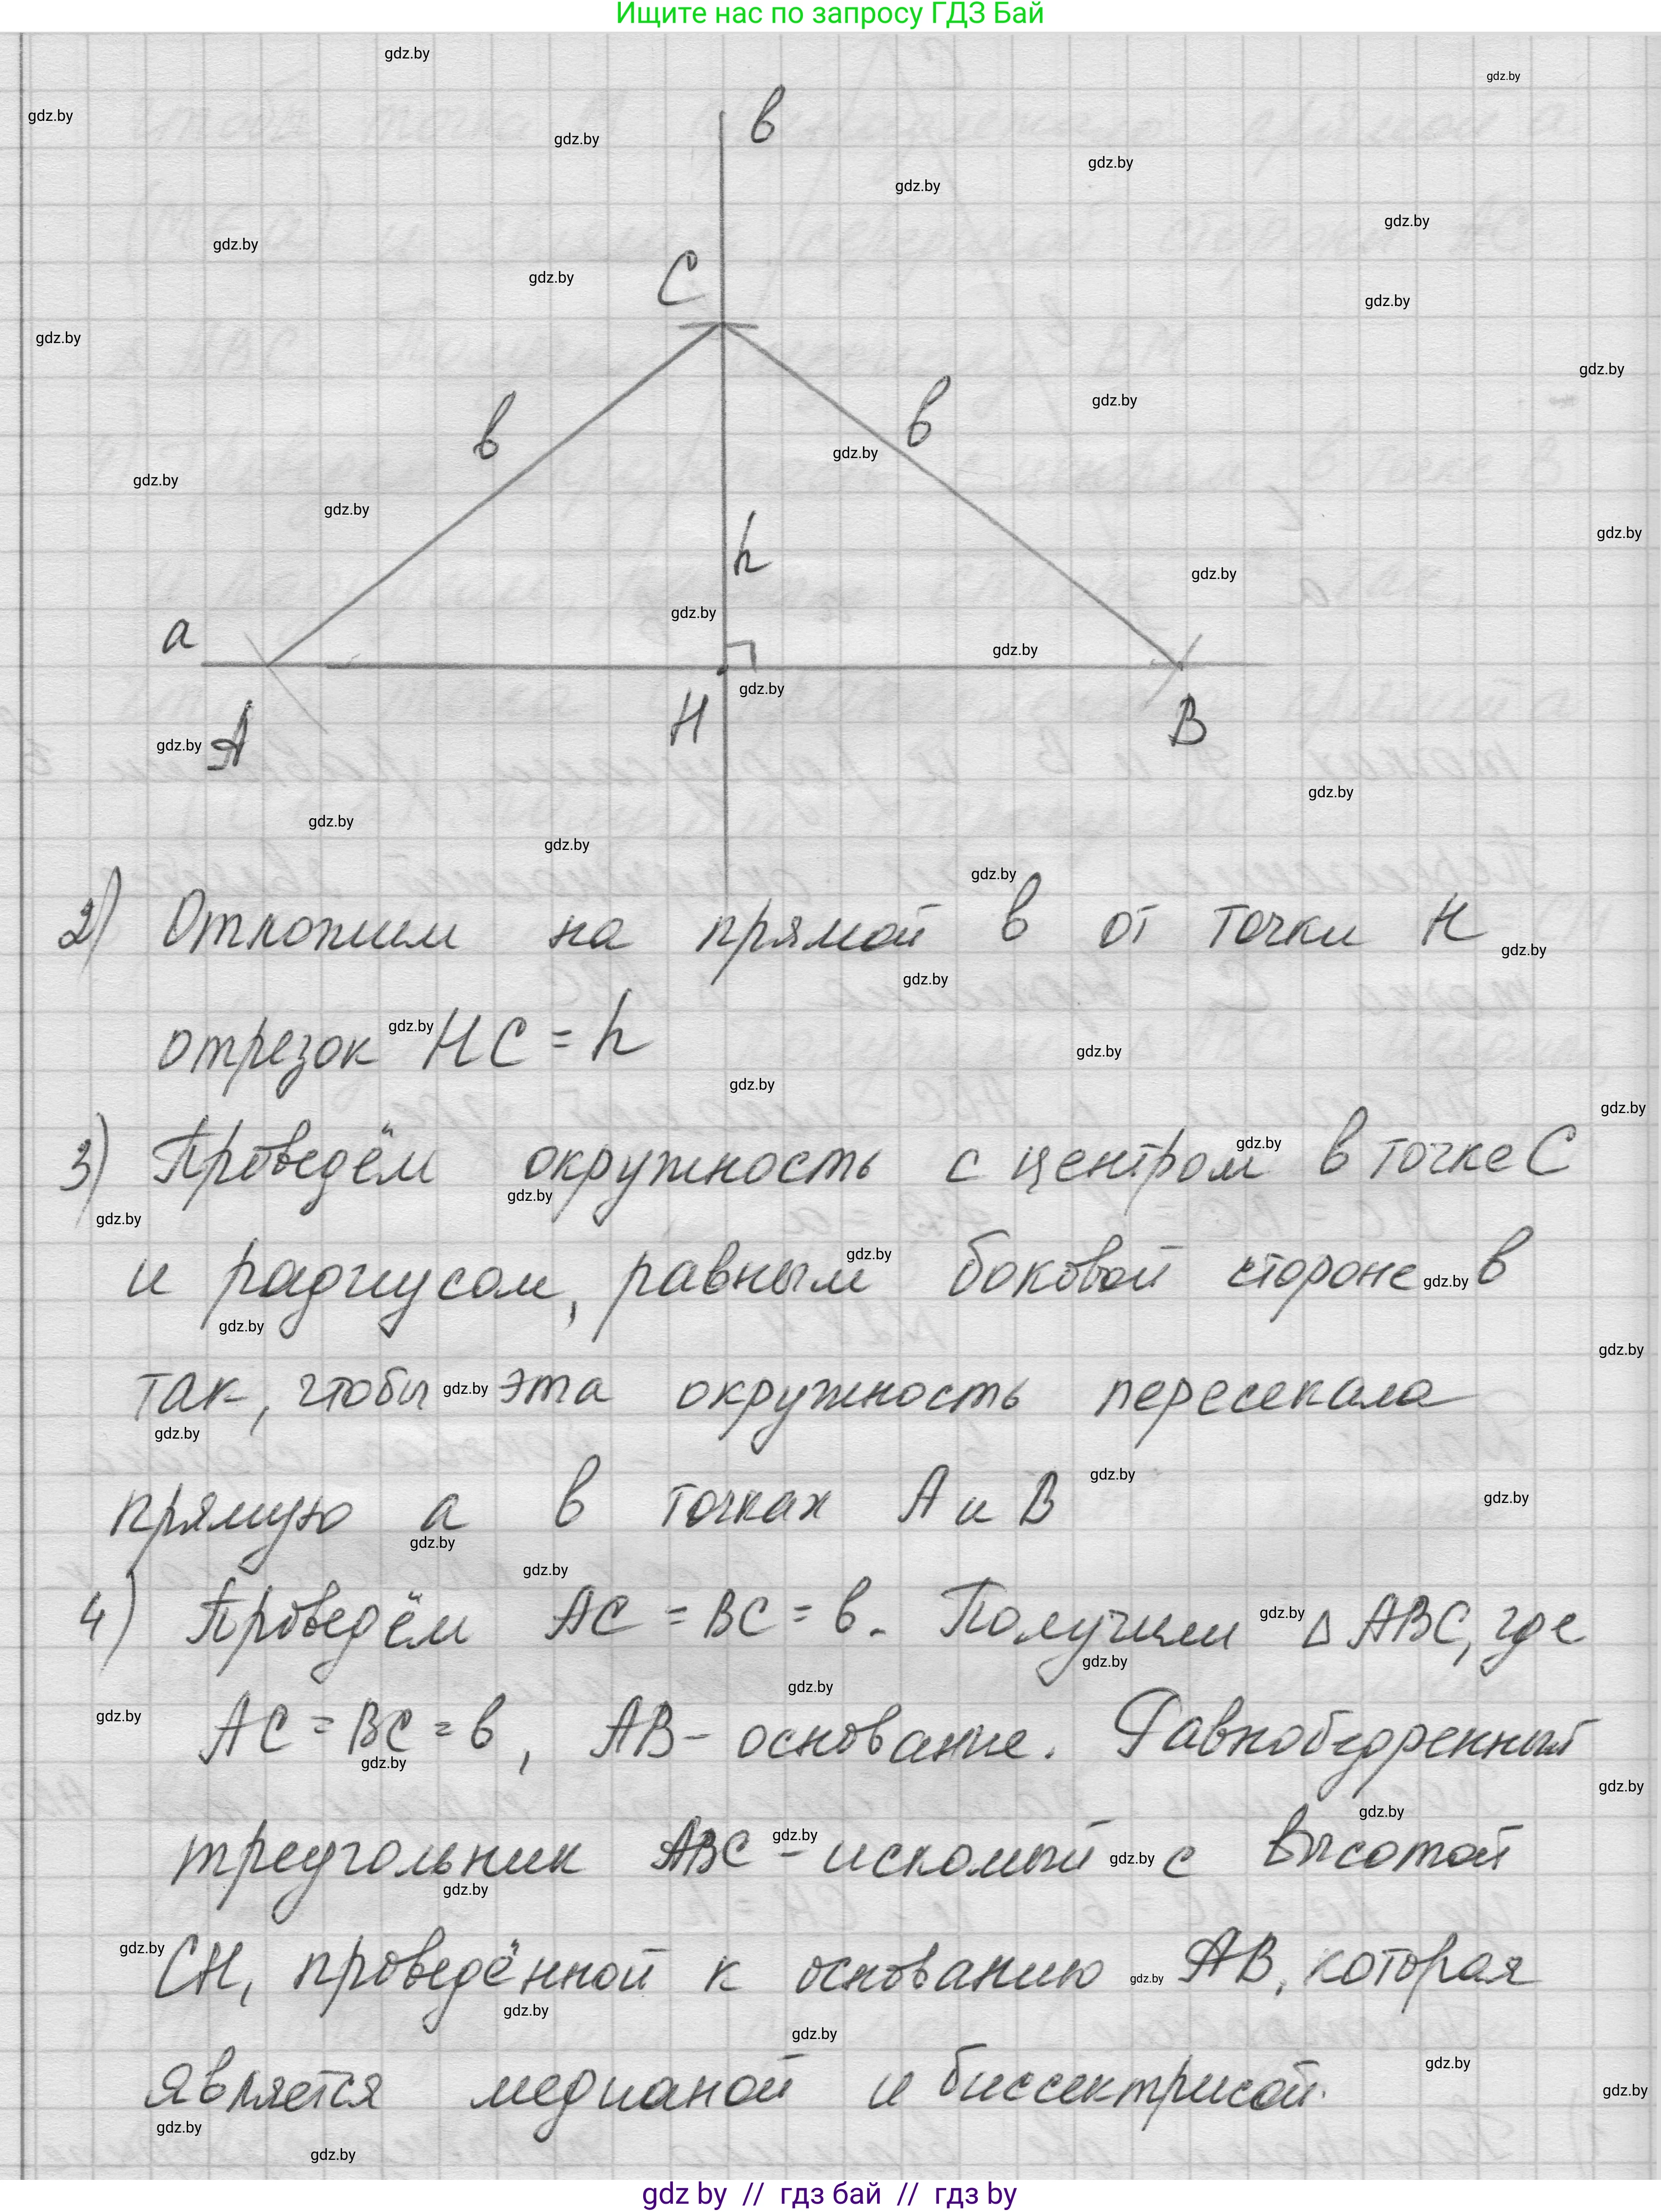 Ищите нас по запросу ГДЗ Бай
в
C
в
в
h
a
A
H
B
2) Отложим на прямой в от точки H
отрезок HC = h
3) Проведём окружность с центром в точке C
и радиусом, равным боковой стороне в
так, чтобы эта окружность пересекала
прямую a в точках A и B
4) Проведём AC = BC = в. Получим △ ABC, где
AC = BC = в, AB - основание. Равнобедренный
треугольник ABC - искомый с высотой
CH, проведённой к основанию AB, которая
является медианой и биссектрисой.
gdz.by
gdz by // гдз бай // гдз by